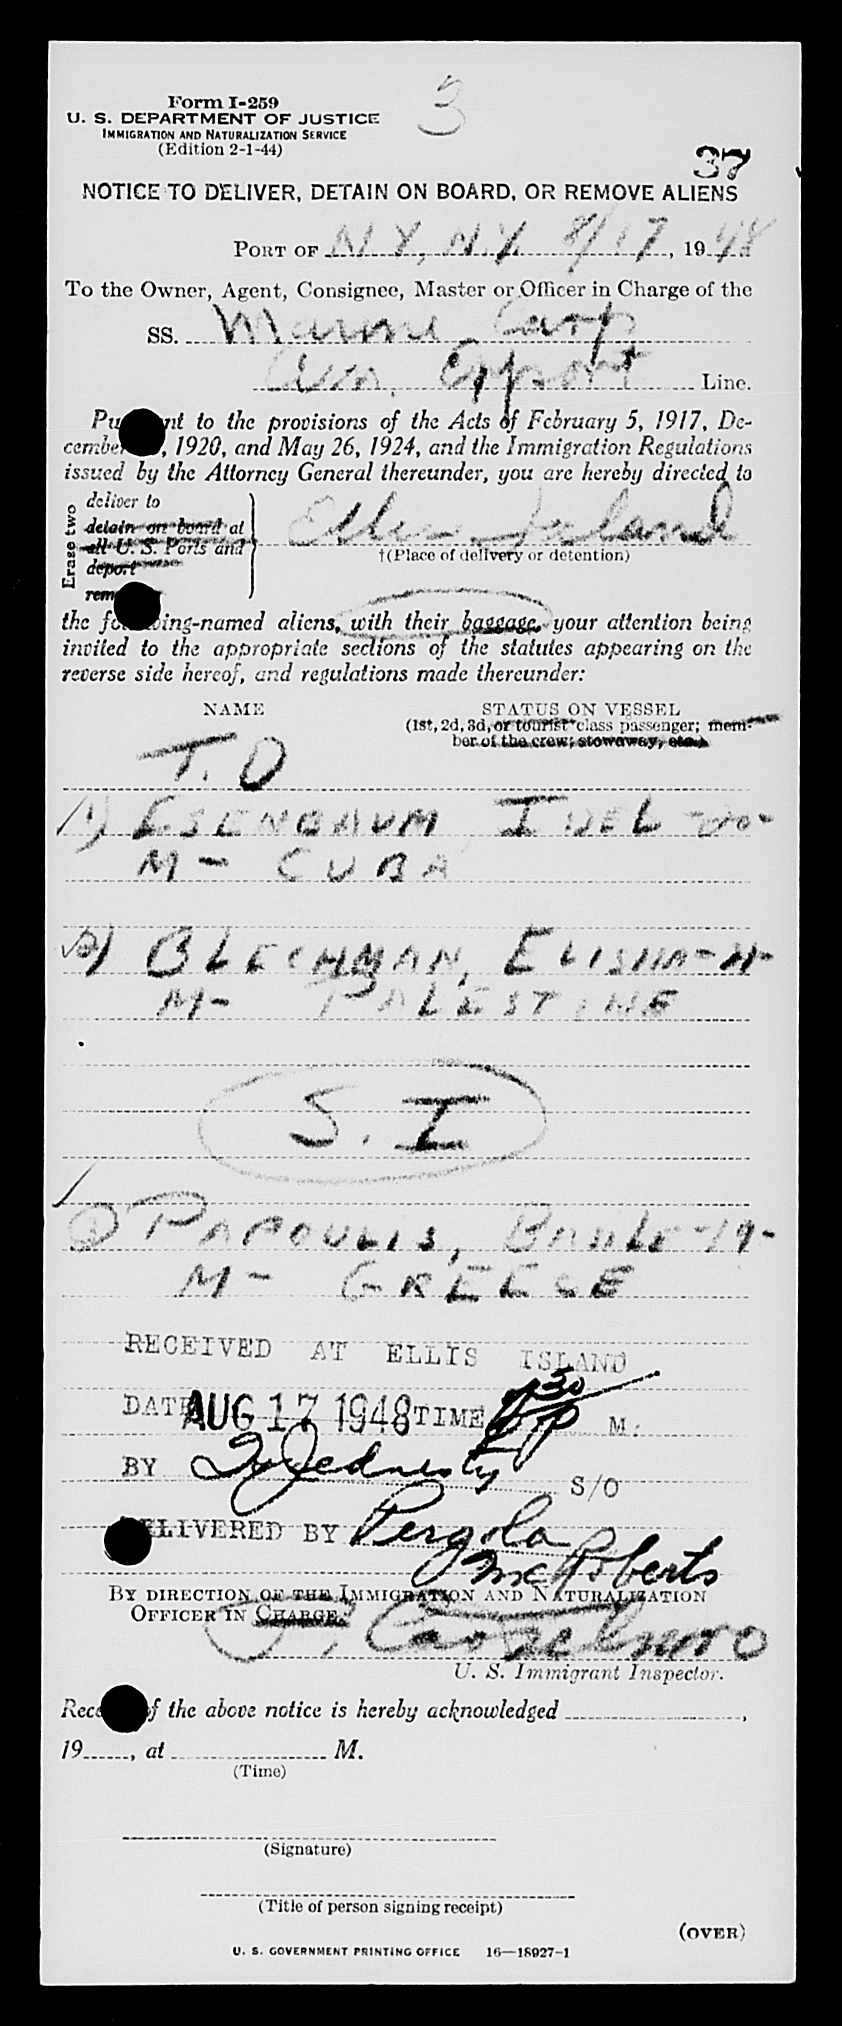 3
Form I-259
U. S. DEPARTMENT OF JUSTICE
IMMIGRATION AND NATURALIZATION SERVICE
(Edition 2-1-44)
37
NOTICE TO DELIVER, DETAIN ON BOARD, OR REMOVE ALIENS
PORT OF N.Y., N.Y. 8/17, 1948
To the Owner, Agent, Consignee, Master or Officer in Charge of the
SS. Marine Carp
Am. Export Line.
Pu nt to the provisions of the Acts of February 5, 1917, De-
cember , 1920, and May 26, 1924, and the Immigration Regulations
issued by the Attorney General thereunder, you are hereby directed to
Erase two
deliver to
detain on board at
all U. S. Ports and
deport
rem
Ellis Island
†(Place of delivery or detention)
the fo ing-named aliens, with their baggage, your attention being
invited to the appropriate sections of the statutes appearing on the
reverse side hereof, and regulations made thereunder:
NAME STATUS ON VESSEL
(1st, 2d, 3d, or tourist class passenger; mem-
ber of the crew; stowaway, etc.)
T. D
1) ESENBAUM IDEL
M - CUBA
2) BLECHMAN, ELISHA
M - PALESTINE
S. I
PAPOULIS, BASILE - 19 -
M - GREECE
RECEIVED AT ELLIS ISLAND
DATE AUG 17 1948 TIME M.
BY S/O
DELIVERED BY Pergola
McRoberts
BY DIRECTION OF THE IMMIGRATION AND NATURALIZATION
OFFICER IN CHARGE.
U. S. Immigrant Inspector.
Rece of the above notice is hereby acknowledged ,
19 , at M.
(Time)
(Signature)
(Title of person signing receipt)
(OVER)
U. S. GOVERNMENT PRINTING OFFICE 16—18927-1